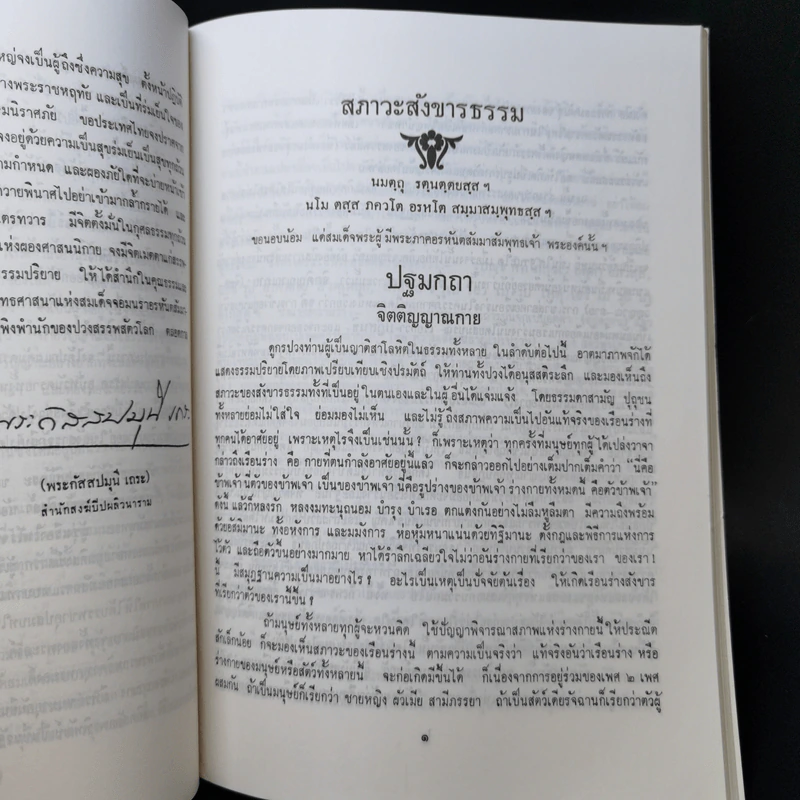 หญ่จงเป็นผู้ถึงซึ่งความสุข ตั้งหน้าปฏิบัติ
างพระราชหฤทัย และเป็นที่ร่มเย็นใจของ
มนิราศภัย ขอประเทศไทยจงปราศจาก
จงอยู่ด้วยความเป็นสุขร่มเย็นเป็นสุขทุกถ้วน
ามกำหนด และผองภัยใดที่จะบ่ายหน้าเข้า
วายพินาศไปอย่าเข้ามากล้ำกรายได้ และ
ตรทวาร มีจิตตั้งมั่นในกุศลธรรมทุก
ห่งผองศาสนนิกาย จงมีจิตเมตตาแก่
รรมปริยาย ให้ได้สำนึกในคุณธรรมและ
ทธศาสนาแห่งสมเด็จจอมนราอรหันตสัมมา
พิงพำนักของปวงสรรพสัตว์โลก ตลอดกาล
พระกัสสปมุนี เถระ
(พระกัสสปมุนี เถระ)
สำนักสงฆ์ปิปผลิวนาราม
สภาวะสังขารธรรม
นมตฺถุ รตฺนตฺตยสฺส ฯ
นโม ตสฺส ภควโต อรหโต สมฺมาสมฺพุทธสฺส ฯ
ขอนอบน้อม แด่สมเด็จพระผู้มีพระภาคอรหันตสัมมาสัมพุทธเจ้า พระองค์นั้น ฯ
ปฐมกถา
จิตติญญาณกาย
ดูกรปวงท่านผู้เป็นญาติสาโลหิตในธรรมทั้งหลาย ในลำดับต่อไปนี้ อาตมาภาพจักได้
แสดงธรรมปริยายโดยภาพเปรียบเทียบเชิงปรมัตถ์ ให้ท่านทั้งปวงได้อนุสสติระลึก และมองเห็นถึง
สภาวะของสังขารธรรมทั้งที่เป็นอยู่ในตนเองและในผู้อื่นได้แจ่มแจ้ง โดยธรรมดาสามัญ ปุถุชน
ทั้งหลายย่อมไม่ใส่ใจ ย่อมมองไม่เห็น และไม่รู้ ถึงสภาพความเป็นไปอันแท้จริงของเรือนร่างที่
ทุกคนได้อาศัยอยู่ เพราะเหตุไรจึงเป็นเช่นนั้น ? ก็เพราะเหตุว่า ทุกครั้งที่มนุษย์ทุกผู้ได้เปล่งวาจา
กล่าวถึงเรือนร่าง คือ กายที่ตนกำลังอาศัยอยู่นี้แล้ว ก็จะกล่าวออกไปอย่างเต็มปากเต็มคำว่า “นี่คือ
ข้าพเจ้า นี่ตัวของข้าพเจ้า เป็นของข้าพเจ้า นี่คือรูปร่างของข้าพเจ้า ร่างกายทั้งหมดนี้ คือตัวข้าพเจ้า”
ดังนี้ แล้วก็หลงรัก หลงงมทะนุถนอม บำรุง บำเรอ ตกแต่งกันอย่างไม่ลืมหูลืมตา มีความถึงพร้อม
ด้วยอัสมิมานะ ทั้งอหังการ และมมังการ ห่อหุ้มหนาแน่นด้วยทิฐิมานะ ตั้งกฎและพิธีการแห่งการ
ไว้ตัว และถือตัวขึ้นอย่างมากมาย หาได้รำลึกเฉลียวใจไม่ว่าอันร่างกายที่เรียกว่าของเรา ของเรา !
นี้ มีสมุฏฐานความเป็นมาอย่างไร ? อะไรเป็นเหตุเป็นปัจจัยต้นเรื่อง ให้เกิดเรือนร่างสังขาร
ที่เรียกว่าตัวของเรานี้ขึ้น ?
ถ้ามนุษย์ทั้งหลายทุกผู้จะหวนคิด ใช้ปัญญาพิจารณาสภาพแห่งร่างกายนี้ ให้ประณีต
สักเล็กน้อย ก็จะมองเห็นสภาวะของเรือนร่างนี้ ตามความเป็นจริงว่า แท้จริงอันว่าเรือนร่าง หรือ
ร่างกายของมนุษย์หรือสัตว์ทั้งหลายนี้ จะก่อเกิดมีขึ้นได้ ก็เนื่องจากการอยู่ร่วมของเพศ ๒ เพศ
ผสมกัน ถ้าเป็นมนุษย์ก็เรียกว่า ชายหญิง ผัวเมีย สามีภรรยา ถ้าเป็นสัตว์เดียรัจฉานก็เรียกว่าตัวผู้
๑